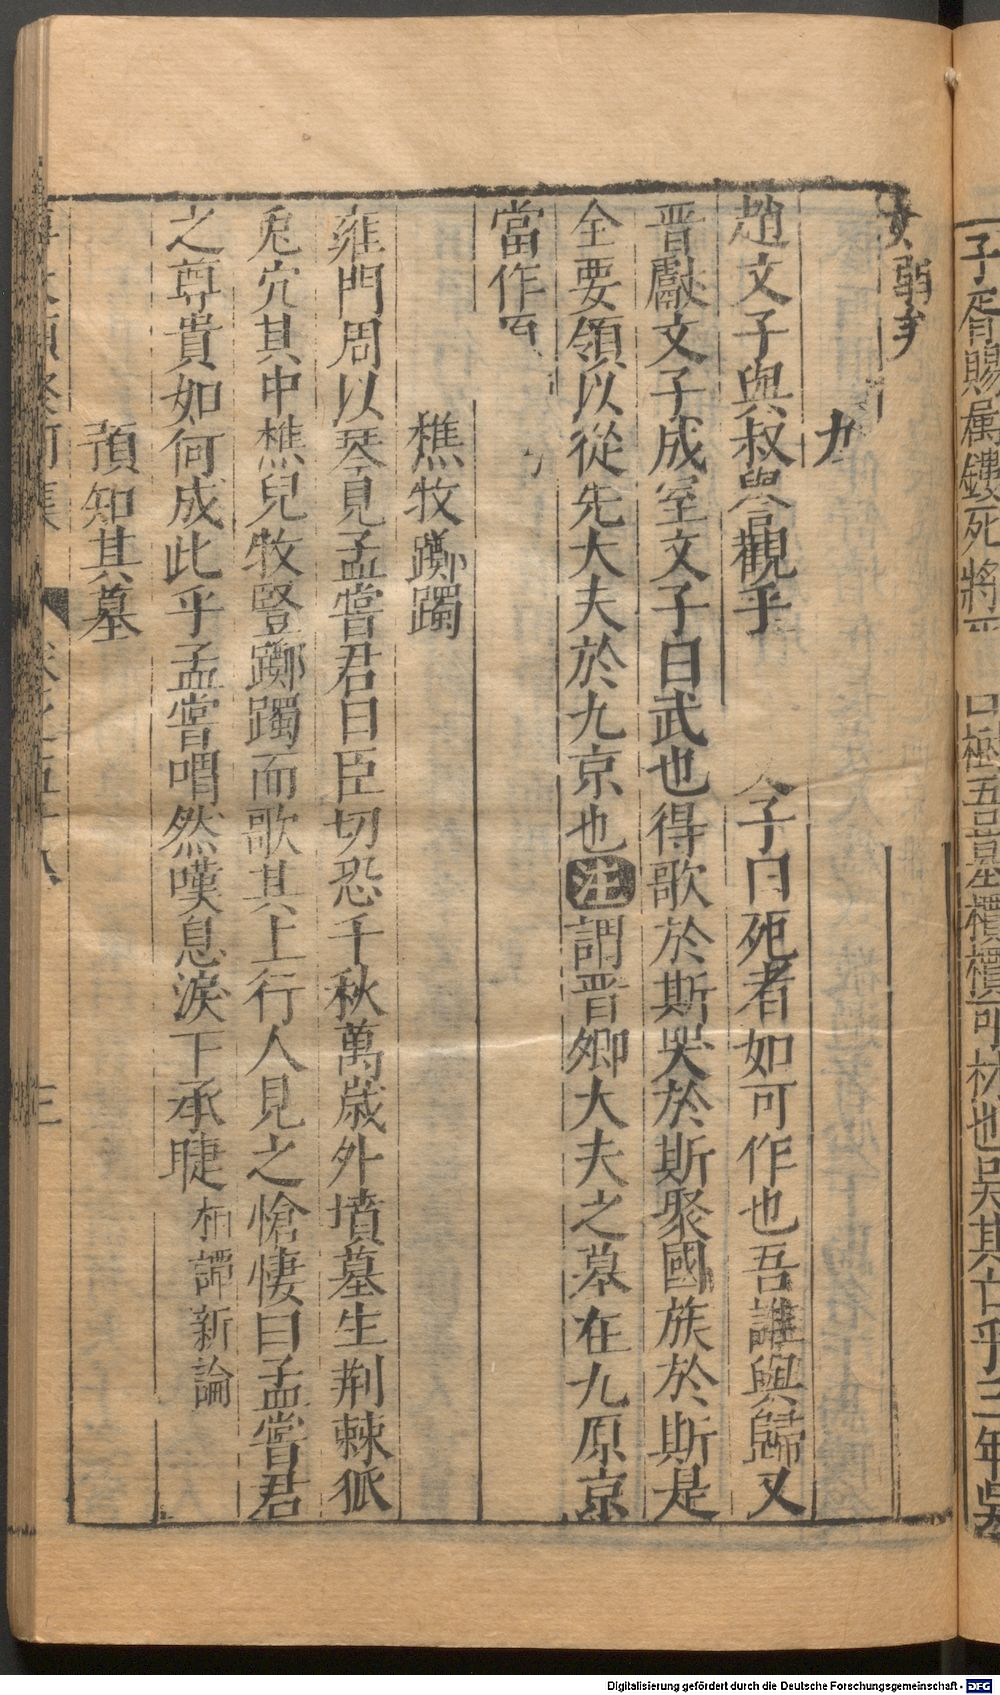 子胥賜属鏤死將
口樹吾墓檟檟可材也吳其亡乎三年吳
弱矣
九
趙文子與叔譽觀乎
子曰死者如可作也吾誰與歸又
晋獻文子成室文子曰武也得歌於斯哭於斯聚國族於斯是
全要領以從先大夫於九京也注謂晋卿大夫之墓在九原京
當作原
樵牧躑躅
雍門周以琴見孟嘗君曰臣切恐千秋萬歲外墳墓生荆棘狐
兎穴其中樵兒牧豎躑躅而歌其上行人見之愴悽曰孟嘗君
之尊貴如何成此乎孟嘗喟然嘆息淚下承睫桓譚新論
預知其墓
三
Digitalisierung gefördert durch die Deutsche Forschungsgemeinschaft - DFG